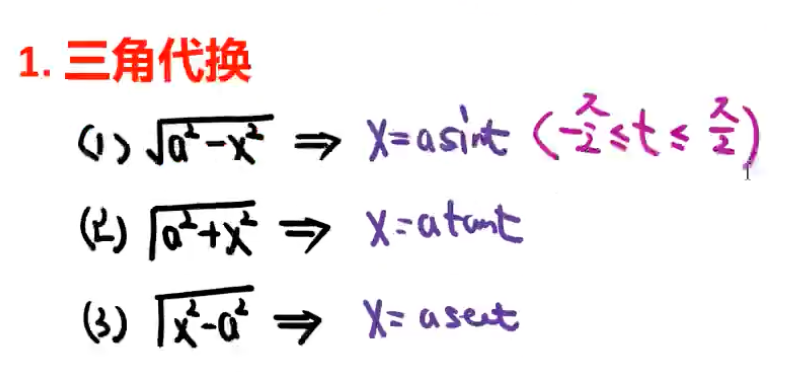 1. 三角代换
(1) √(a²-x²) ⇒ x=asint (-π/2≤t≤π/2)
(2) √(a²+x²) ⇒ x=atant
(3) √(x²-a²) ⇒ x=asect